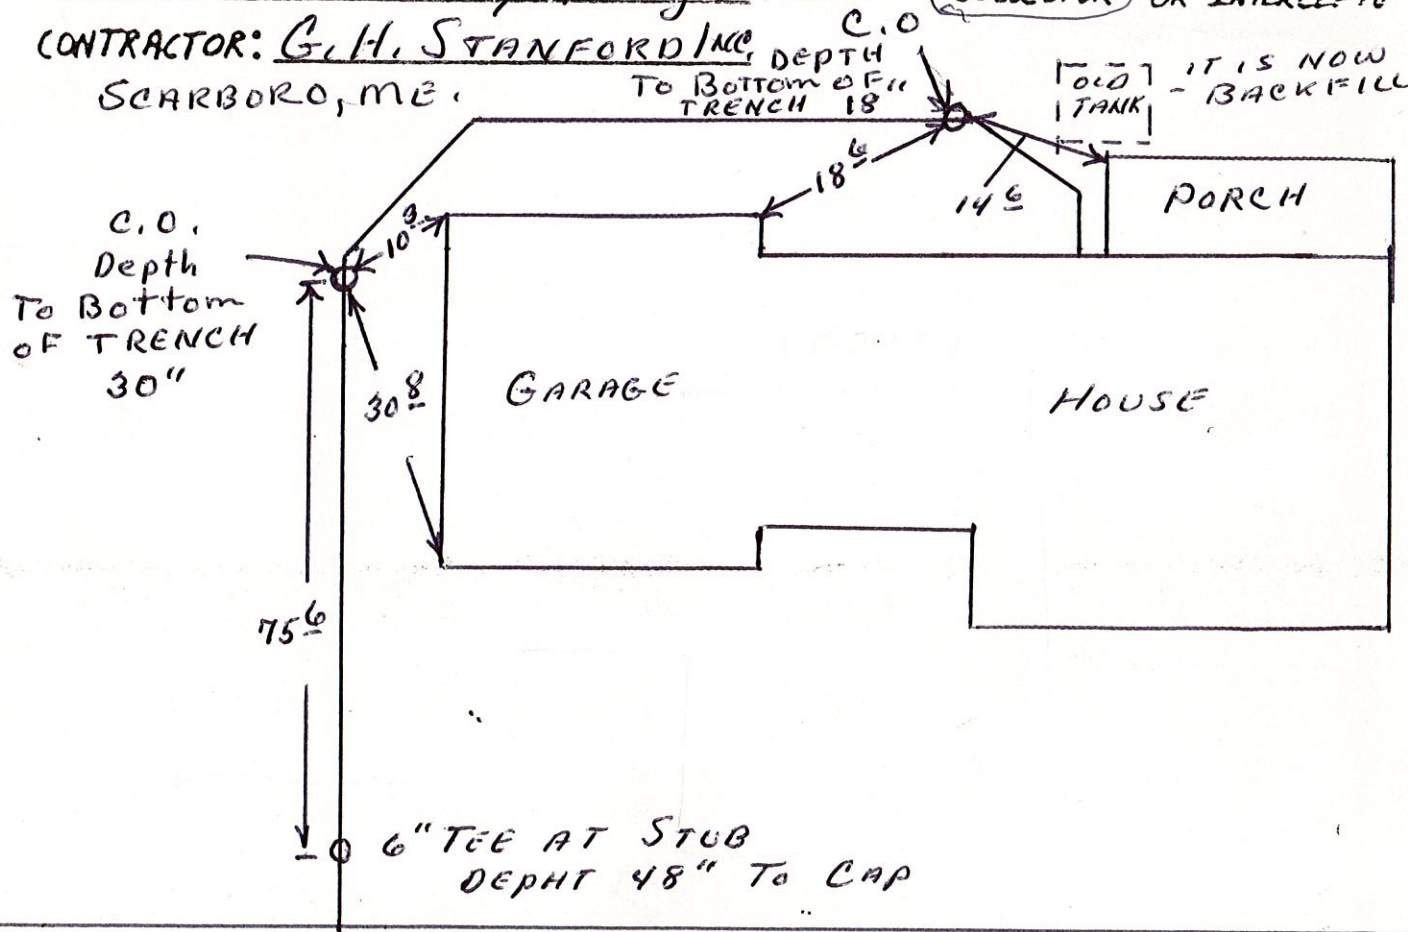 OR
CONTRACTOR: G.H. STANFORD INC.
SCARBORO, ME.
C.O
DEPTH
To Bottom OF
TRENCH 18"
OLD
TANK
- IT IS NOW
BACKFILL
18 6
14 6
PORCH
10 9
C.O.
Depth
To Bottom
OF TRENCH
30"
30 8
GARAGE
HOUSE
75 6
6" TEE AT STUB
DEPHT 48" To CAP